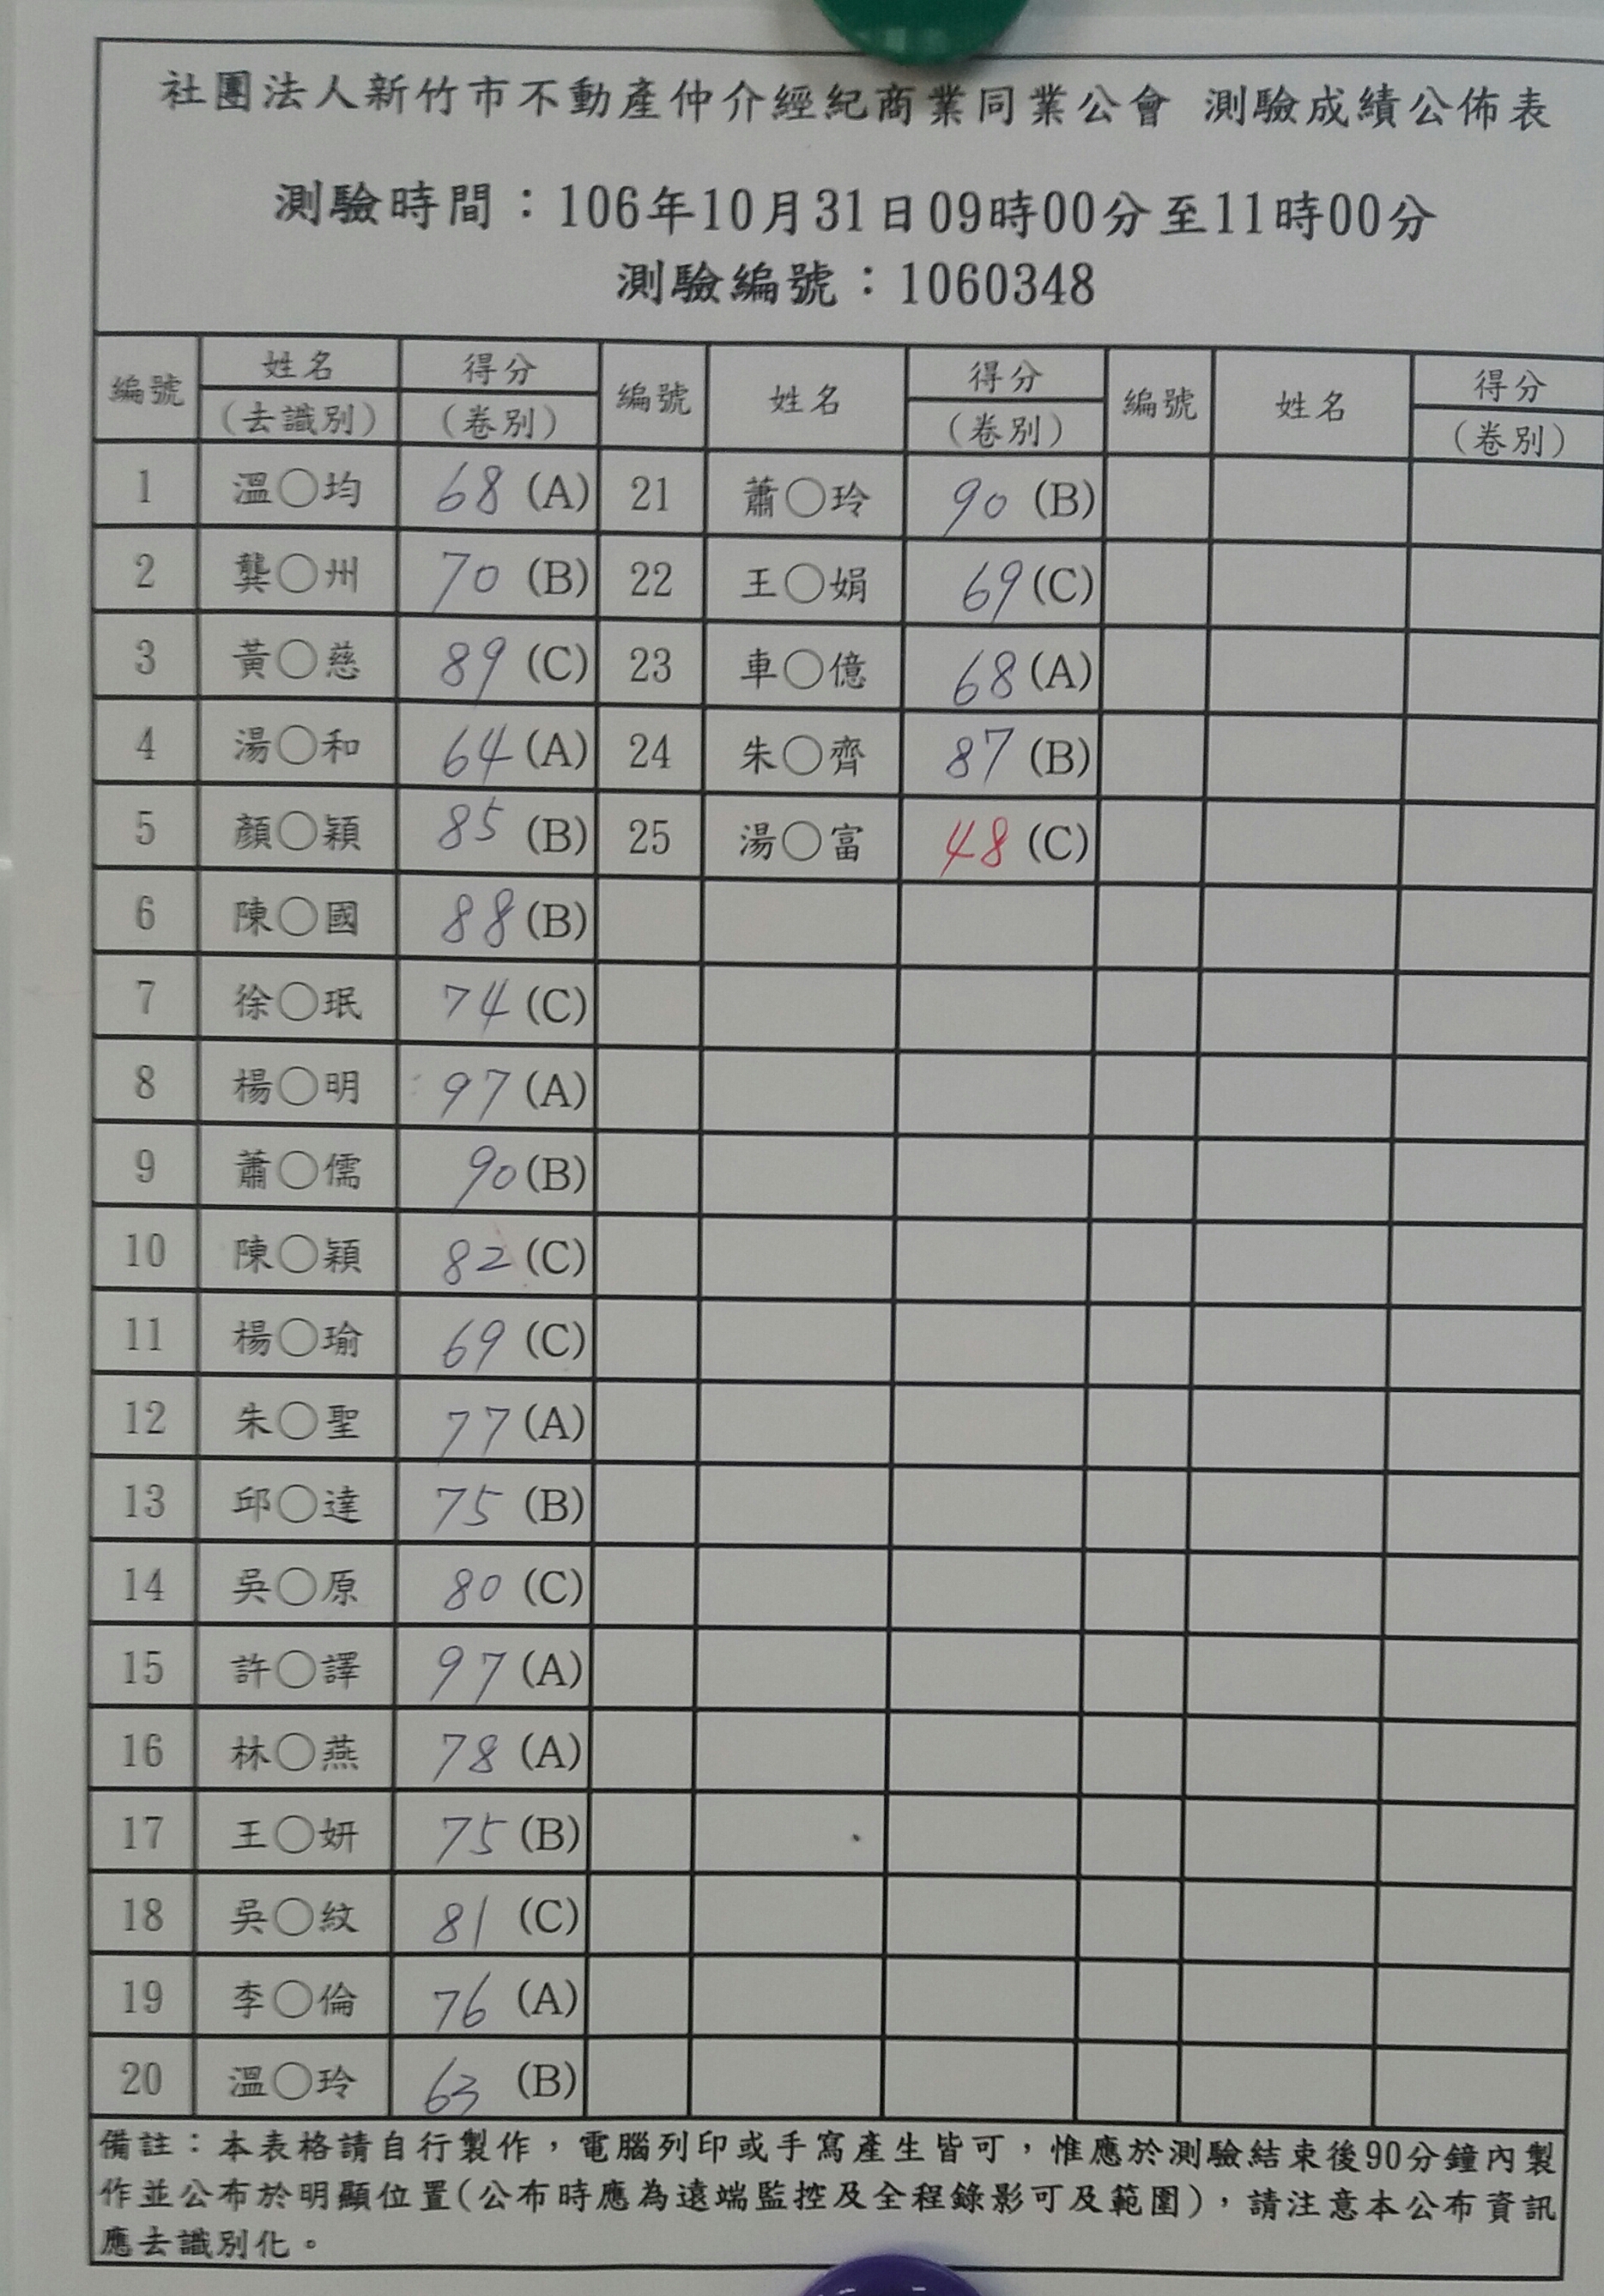 社團法人新竹市不動產仲介經紀商業同業公會 測驗成績公佈表
測驗時間：106年10月31日09時00分至11時00分
測驗編號：1060348
編號 姓名 得分 編號 姓名 得分 編號 姓名 得分
（去識別） （卷別） （卷別） （卷別）
1 溫〇均 68 (A) 21 蕭〇玲 90 (B)
2 龔〇州 70 (B) 22 王〇娟 69 (C)
3 黃〇慈 89 (C) 23 車〇億 68 (A)
4 湯〇和 64 (A) 24 朱〇齊 87 (B)
5 顏〇穎 85 (B) 25 湯〇富 48 (C)
6 陳〇國 88 (B)
7 徐〇珉 74 (C)
8 楊〇明 97 (A)
9 蕭〇儒 90 (B)
10 陳〇穎 82 (C)
11 楊〇瑜 69 (C)
12 朱〇聖 77 (A)
13 邱〇達 75 (B)
14 吳〇原 80 (C)
15 許〇譯 97 (A)
16 林〇燕 78 (A)
17 王〇妍 75 (B)
18 吳〇紋 81 (C)
19 李〇倫 76 (A)
20 溫〇玲 63 (B)
備註：本表格請自行製作，電腦列印或手寫產生皆可，惟應於測驗結束後90分鐘內製
作並公布於明顯位置(公布時應為遠端監控及全程錄影可及範圍)，請注意本公布資訊
應去識別化。